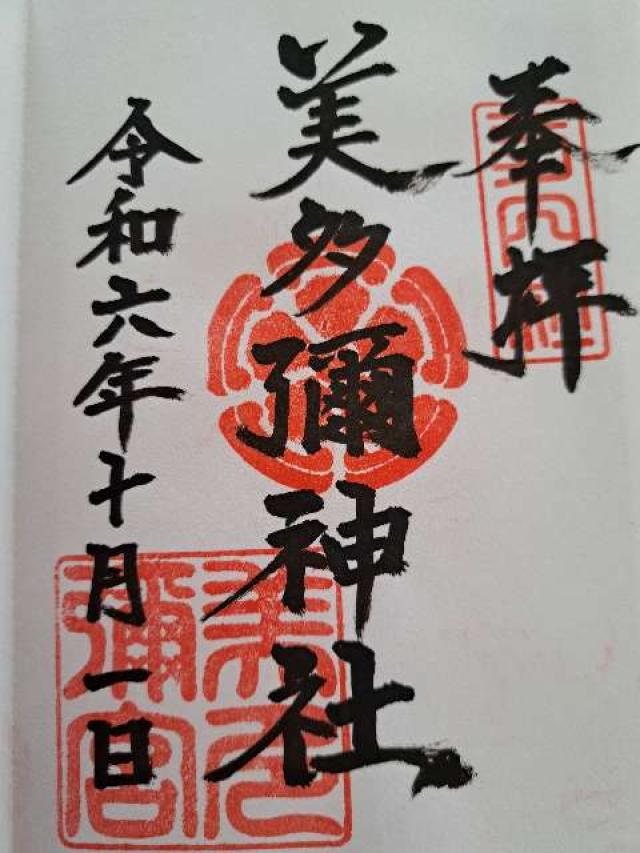 奉拝
美多彌神社
令和六年十月一日
美多彌宮